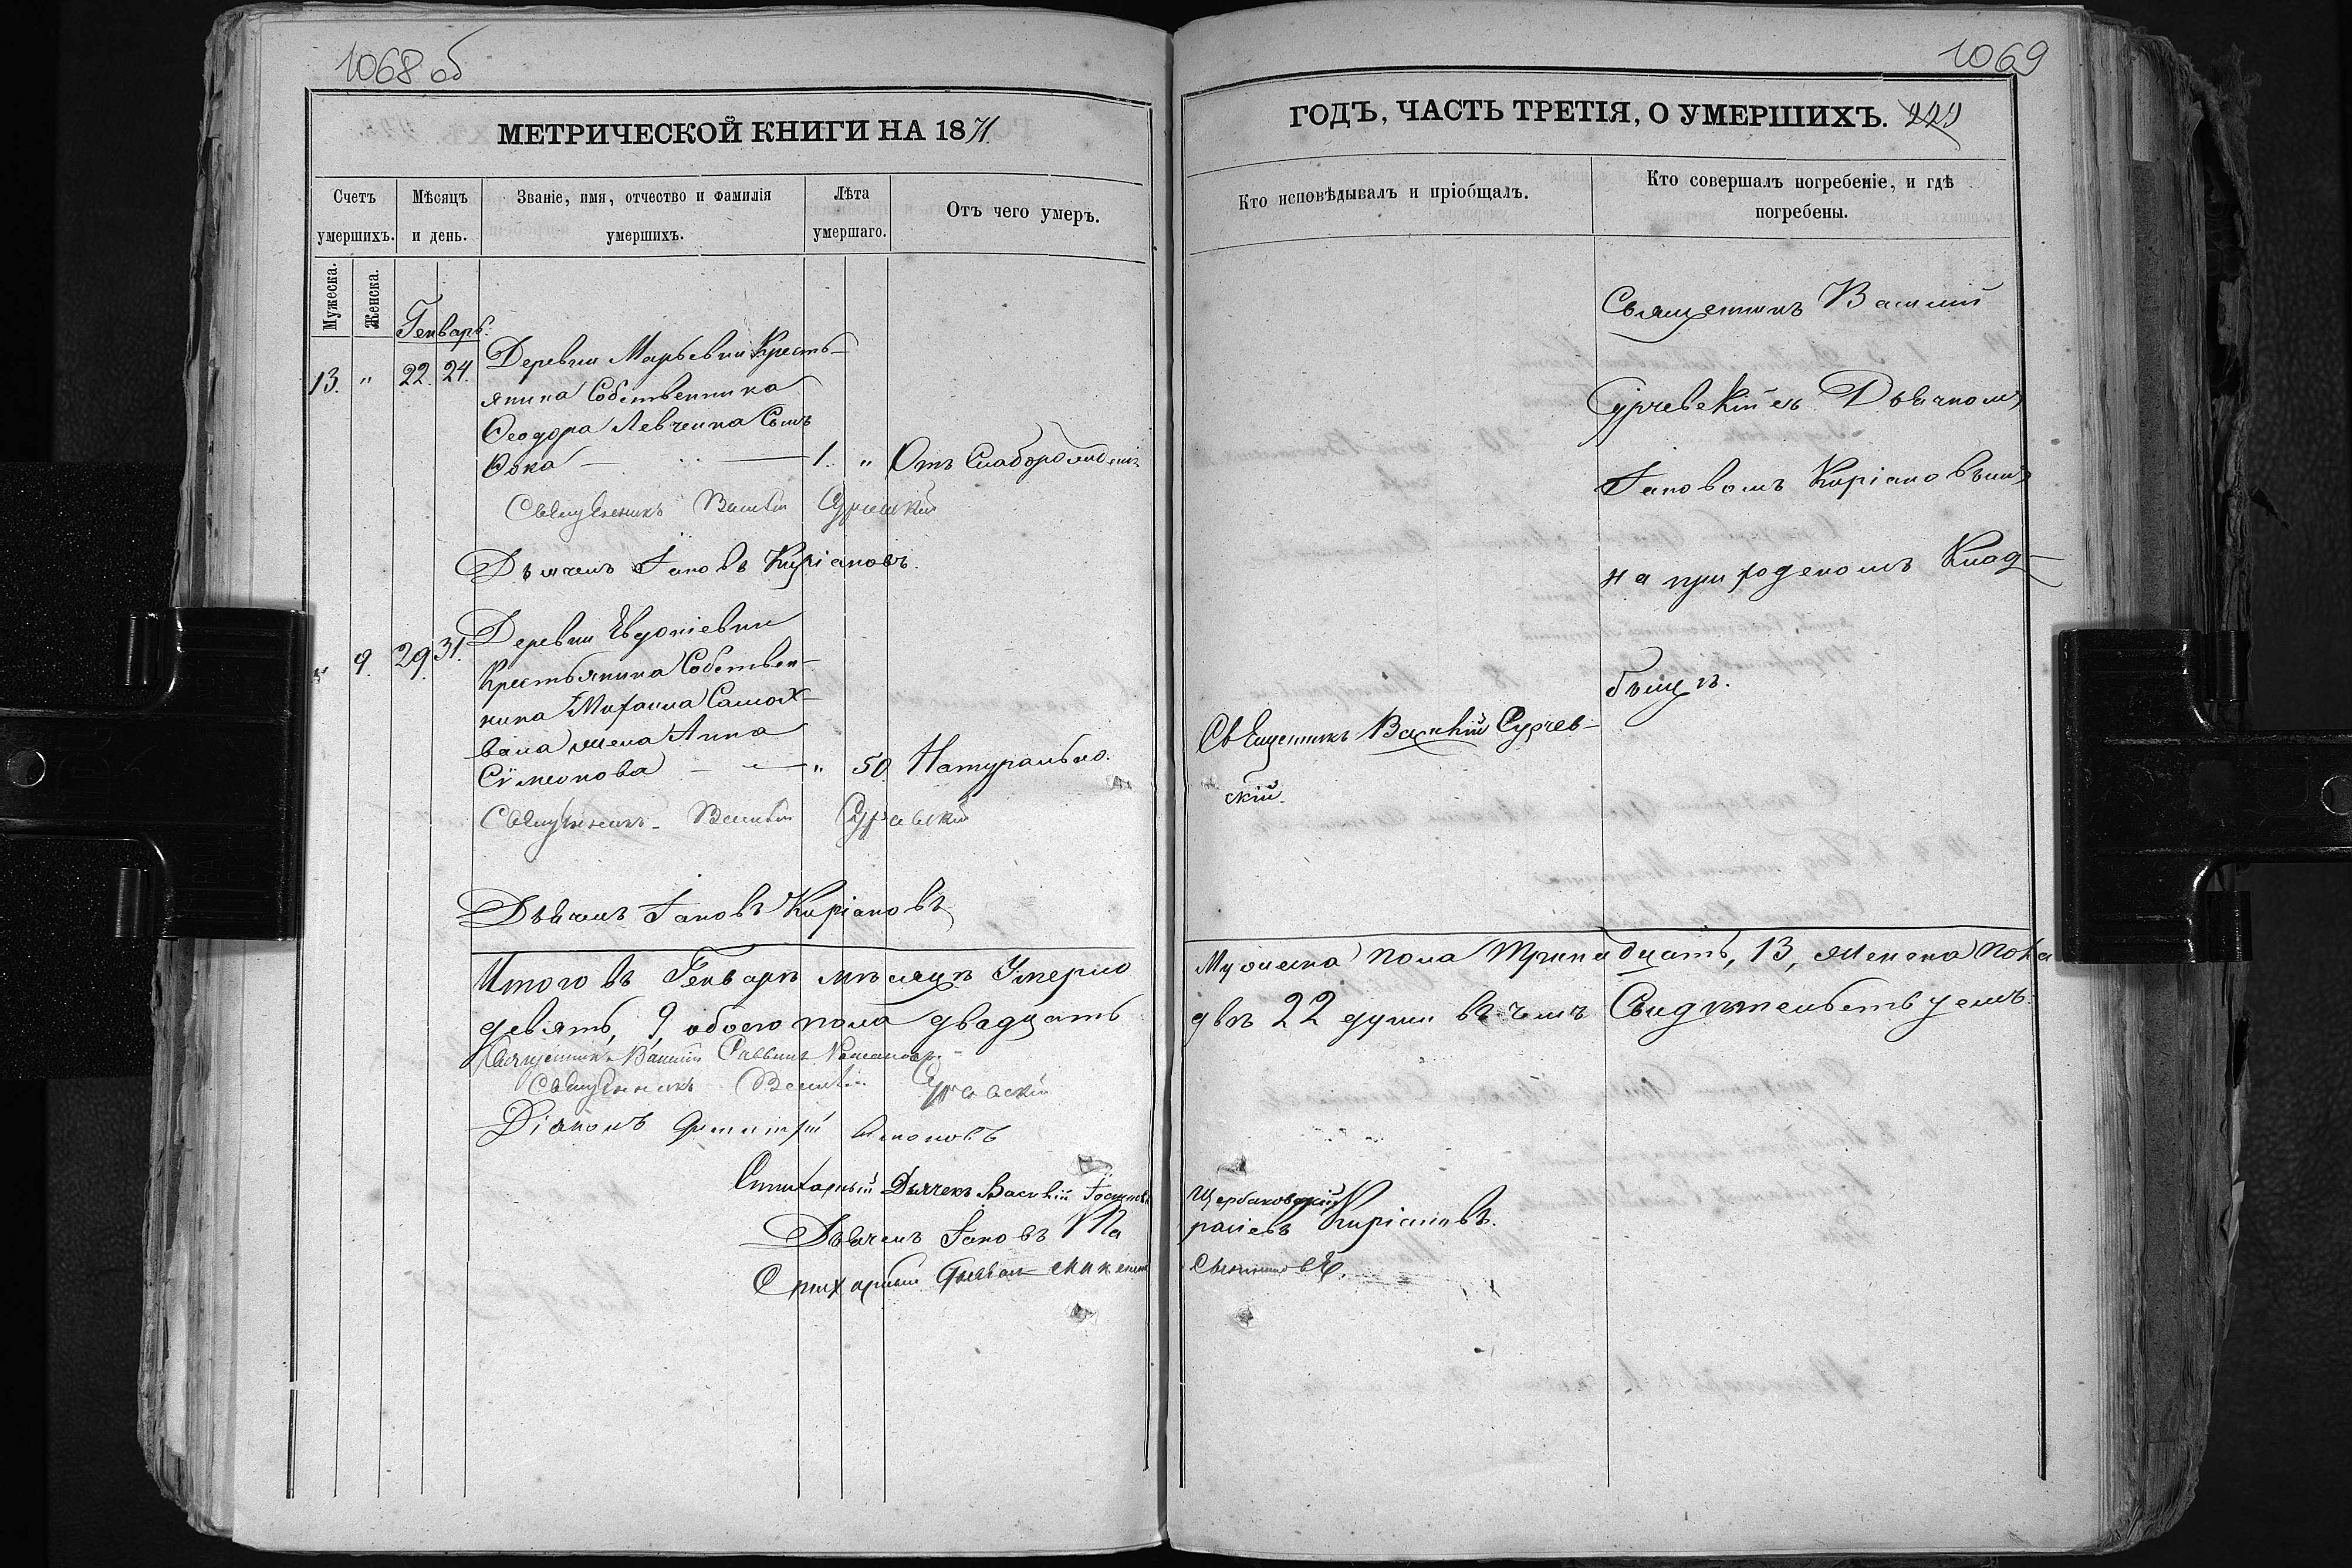 1068 об
МЕТРИЧЕСКОЙ КНИГИ НА 1871.
Счетъ умершихъ.
Мѣсяцъ и день.
Званіе, имя, отчество и фамилія умершихъ.
Лѣта умершаго.
Отъ чего умеръ.
Мужеска.
Женска.
Генварь.
13. " 22. 24. Деревни Марьевки Кресть-
янина Собственника
Ѳеодора Левченка Сынъ
Ѳока — 1. " Отъ Слаборожденія
Священникъ Василій Сурчевскій
Дьячекъ Іаковъ Киріаковъ.
" 9. 29. 31. Деревни Евдокіевки
Крестьянина Собствен-
ника Михаила Самох-
вала жена Анна
Сѵмеонова — " 50. Натурально.
Священникъ Василій Сурчевскій
Дьячекъ Іаковъ Киріаковъ
Итого въ Генварѣ мѣсяцѣ Умерло
девять, 9, обоего пола двадцать
Священникъ Василій
Священникъ Василій Сурчевскій
Діаконъ Димитрій
Дьячекъ Василій
Дьячекъ Іаковъ Ка
1069
ГОДЪ, ЧАСТЬ ТРЕТІЯ, О УМЕРШИХЪ. 223
Кто исповѣдывалъ и пріобщалъ.
Кто совершалъ погребеніе, и гдѣ погребены.
Священникъ Василій
Сурчевскій съ Дьячкомъ
Іаковомъ Киріаковымъ
на приходскомъ Клад-
бищѣ.
Священникъ Василій Сурчев-
скій.
Мужеска пола тринадцать, 13, женска пола
двѣ 22 души въ чемъ Свидѣтельствуемъ:
Щербаковскій
Киріаковъ.